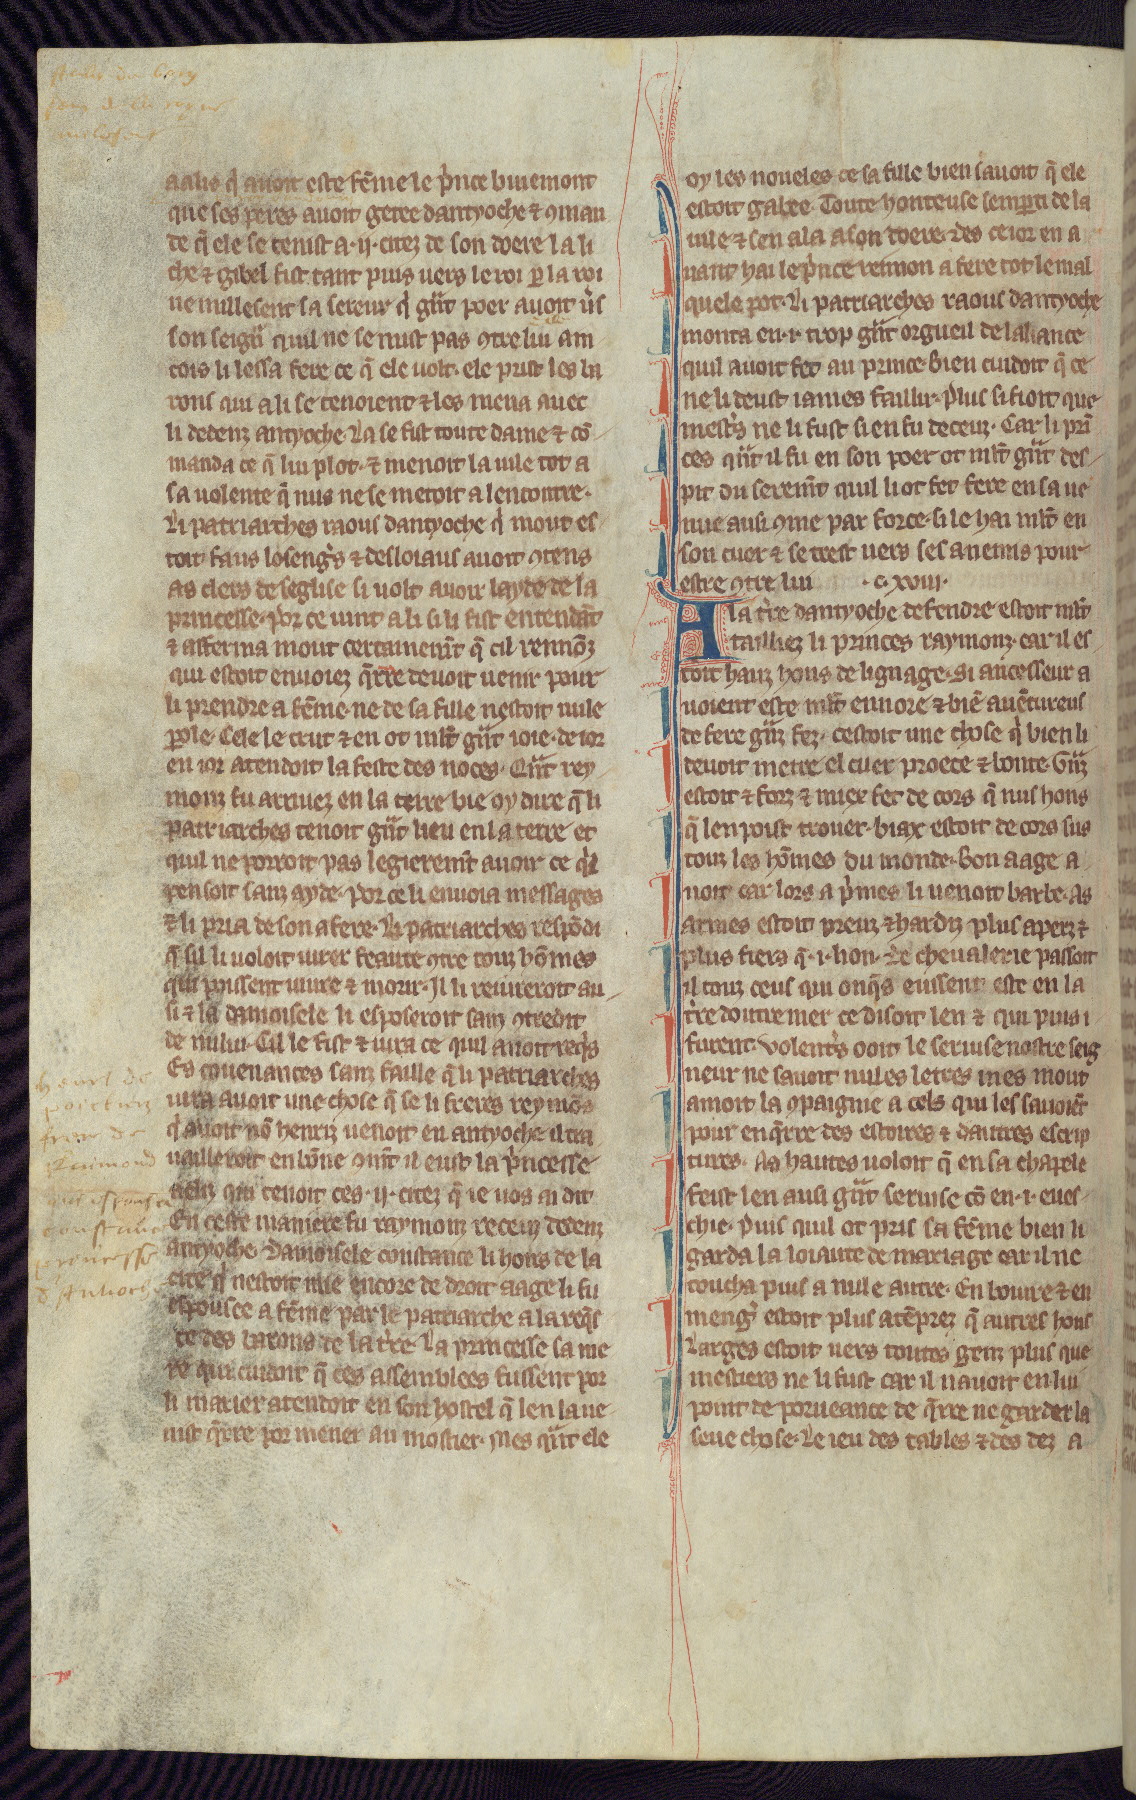 aalis q̇ auoit este fẽme le p̾nce buiemont
que ses peres auoit getee dantyoche ⁊ ꝯman
te q̃ ele se tenist a·ij· citez de son doere la li
che ⁊ gibel fist tant puis uers le roi ꝑ la roi
ne millesent sa sereur q̇ g̃nt poer auoit u̾s
son seign̾ quil ne se mist pas ꝯtre lui ain
cois li lessa fere ce q̃ ele uolt· ele prist les ba
rons qui a li se tenoient ⁊ les mena auec
li dedenz antyoche· La se fist toute dame ⁊ cõ
manda ce q̃ lui plot· ⁊ menoit la uile tot a
sa uolente q̃ nus ne se metoit a lencontre·
Li patriarches raous dantyoche q̇ mout es
toit faus loseng̾s ⁊ desloiaus auoit ꝯtens
as clers de seglise si uolt auoir layde de la
princesse· por ce uint a li si li fist entendãt
⁊ afferma mout certainem̃t q̃ cil reimõz
qui estoit enuoiez q̃rre deuoit uenir pour
li prendre a fẽme· ne de sa fille nestoit nule
ꝑole· Cele le crut ⁊ en ot ml̃t g̃nt ioie· de ior
en ior atendoit la feste des noces· Q̃nt rey
monz fu arriuez en la terre bie oy dire q̃ li
patriarches tenoit g̃nt lieu en la terre et
quil ne porroit pas legierem̃t auoir ce q̇l
pensoit sanz ayde· por ce li enuoia messages
⁊ li pria de son afere· Li patriarches respõdi
q̃ sil li uoloit iurer feaute ꝯtre touz hõmes
qui puissent uiure ⁊ morir· Il li reiureroit au
si ⁊ la damoisele li esposeroit sanz ꝯtredit
de nului· Cil le fist ⁊ iura ce quil auoit req̾s
Es couenances sanz faille q̃ li patriarches
iura auoit une chose q̃ se li freres reymõs
q̇ auoit nõ henriz uenoit en antyoche il tra
uailleroit en bõne ꝯm̃t il eust la p̾ncesse
aeliz qui tenoit ces·ij· citez q̃ ie uos ai dit
En ceste maniere fu raymonz receuz dedenz
antyoche· Damoisele constance li hons de la
cite q̇ nestoit mie encore de droit aage li fu
espousee a fẽme par le patriarche a la req̾s
te des barons de la t̾re· La princesse sa me
re qui cuidoit q̃ ces assemblees fussent por
li marier atendoit en son hostel q̃ len la ue
nist q̃rre por mener au mostier· Mes q̃nt ele
oy les noueles de sa fille bien sauoit q̃ ele
estoit gabee· Toute honteuse semparti de la
uile ⁊ sen ala a son doere· des ce ior en a
uant hai le p̾nce reimon a fere tot le mal
quele pot· Li patriarches raous dantyoche
monta en·i· trop g̃nt orgueil de laliance
quil auoit fet au prince· bien cuidoit q̃ ce
ne li deust iames faillir· Plus si fioit que
mest̾s ne li fust si en fu deceuz· Car li prĩ
ces q̃nt il fu en son poer ot ml̃t g̃nt des
pit du serem̃t quil li ot fet fere en sa ue
nue ausi ꝯme par force· si le hai ml̃t en
son cuer ⁊ se trest uers ses anemis pour
estre ꝯtre lui ·c·xviii·
A la t̾re dantyoche defendre estoit ml̃t
tailliez li princes raymonz· car il es
toit hauz hons de lignage· Si ancesseur a
uoient este ml̃t ennore ⁊ biẽ auẽtureus
de fere g̃nz fez· cestoit une chose q̇ bien li
deuoit metre el cuer proece ⁊ bonte· G̃nz
estoit ⁊ forz ⁊ miex fet de cors q̃ nus hons
q̃ len poist trouer· biax estoit de cors sus
touz les hõmes du monde· Bon aage a
uoit car lors a p̾mes li uenoit barbe· As
armes estoit preuz ⁊ hardiz plus aperz ⁊
plus fiers q̃·i· lion· De cheualerie passoit
il touz ceus qui onq̃s eussent este en la
t̾re doutre mer ce disoit len ⁊ qui puis i
furent· Volent̾s ooit le seruise nostre seig
neur ne sauoit nules letres mes mout
amoit la ꝯpaignie a cels qui les sauoiẽt
pour enq̃rre des estoires ⁊ dautres escrip
tures· As hautes uoloit q̃ en sa chapele
feist len ausi g̃nt seruise cõ en·i· eues
chie· Puis quil ot pris sa fẽme bien li
garda la loiaute de mariage car il ne
toucha puis a nule autre· En boiure ⁊ en
meng̾ estoit plus atẽprez q̃ autres hons
Larges estoit uers toutes genz plus que
mestiers ne li fust car il nauoit en lui
point de porueance de q̃rre ne garder la
seue chose· Le ieu des tables ⁊ des dez a
henri de
poictiers
frere de
Raimond
qui espousa
constance
princesse
d Antioche